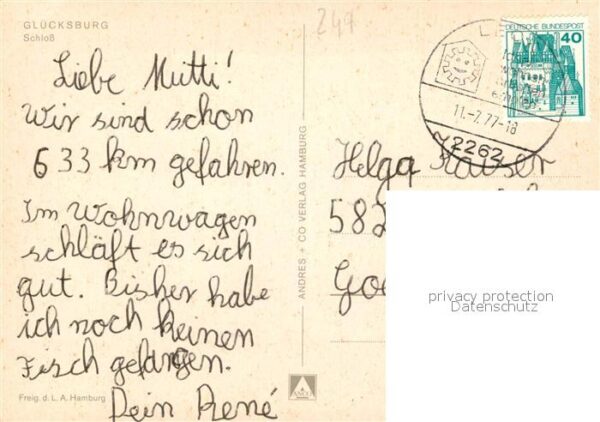 GLÜCKSBURG
Schloß
249
Liebe Mutti!
Wir sind schon
633 km gefahren.
Im Wohnwagen
schläft es sich
gut. Bisher habe
ich noch keinen
Fisch gefangen.
Dein René
Freig. d. L. A. Hamburg
ANDRES + CO VERLAG HAMBURG
ANCO
DEUTSCHE BUNDESPOST
40
11.-7.77-18
2262
Helga Kaiser
58
privacy protection
Datenschutz